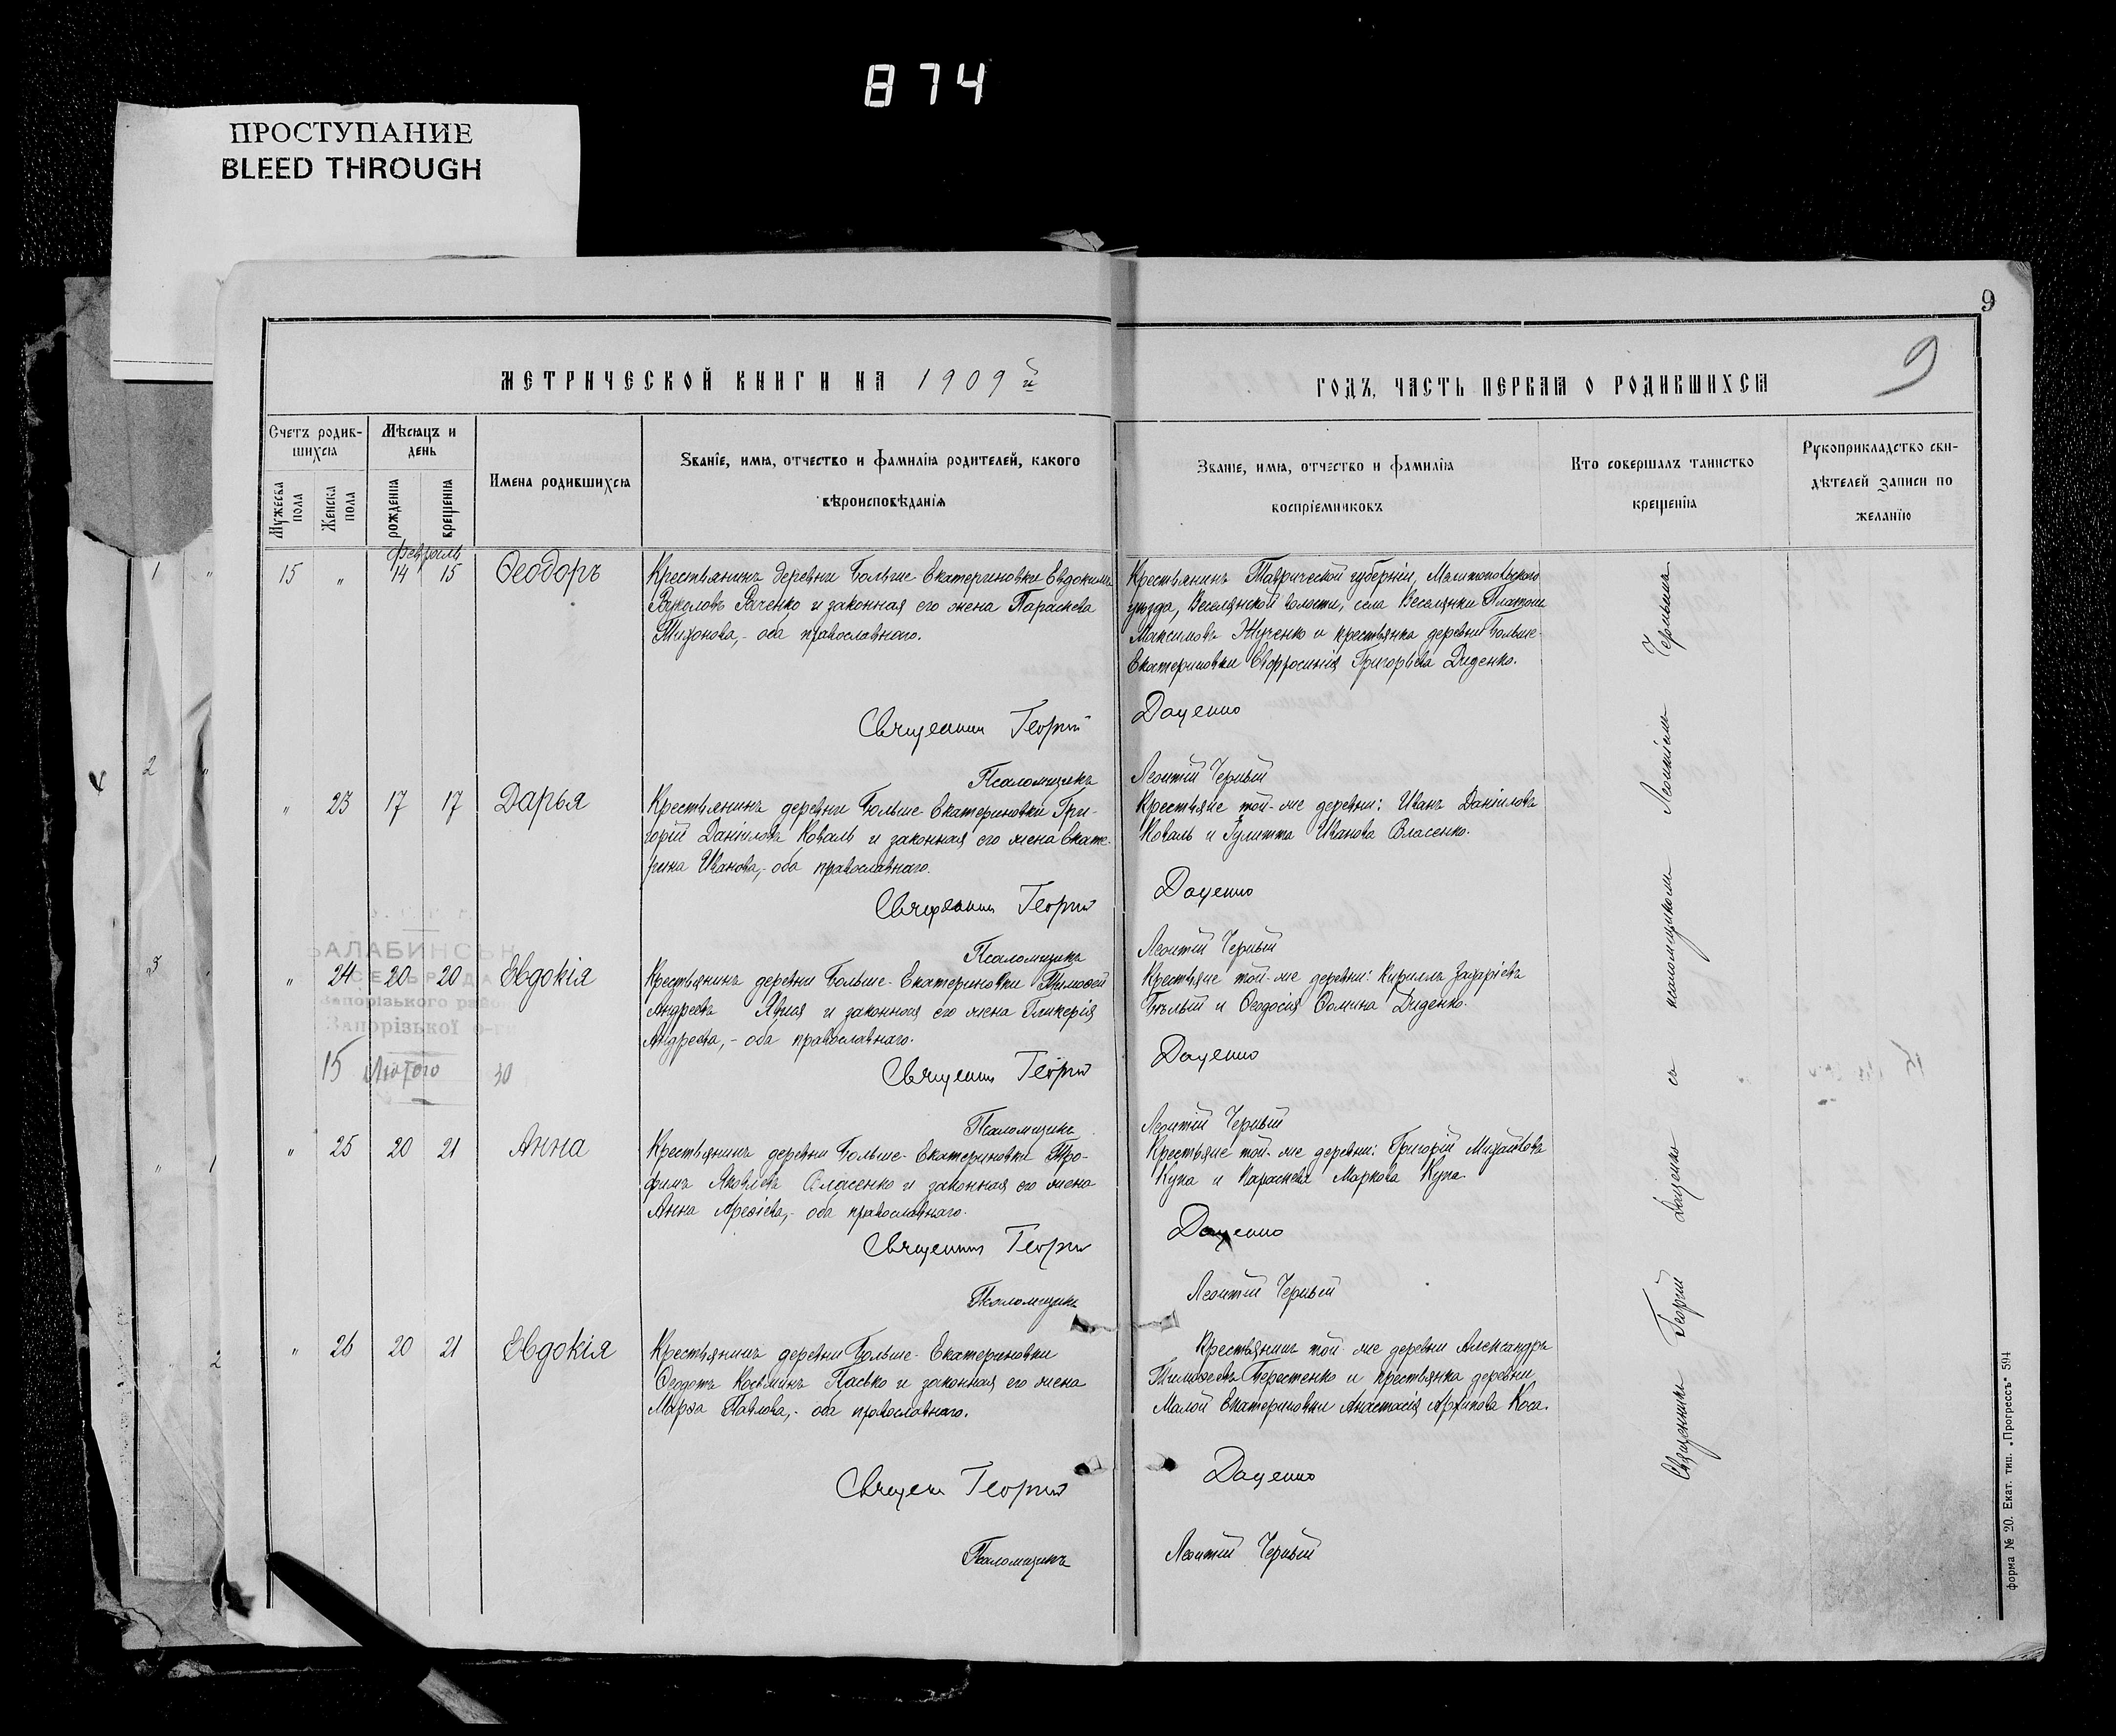 874
ПРОСТУПАНИЕ
BLEED THROUGH
9
9
МЕТРИЧЕСКОЙ КНИГИ НА 1909й
ГОДЪ, ЧАСТЬ ПЕРВАЯ О РОДИВШИХСЯ
Счетъ родив-
шихся
Мѣсяцъ и
день
Мужеска
пола
Женска
пола
рожденія
крещенія
Имена родившихся
Званіе, имя, отчество и фамилія родителей, какого
вѣроисповѣданія
Званіе, имя, отчество и фамилія
воспріемниковъ
Кто совершалъ таинство
крещенія
Рукоприкладство сви-
дѣтелей записи по
желанію
февраль
15 " 14 15 Ѳеодоръ
Крестьянинъ деревни Больше Екатериновки Евдокимъ
и законная его жена Параскева
Тихонова, - оба православнаго.
Крестьянинъ Таврической губерніи, Мелитопольскаго
уѣзда, Веселянской волости, села Веселянки Платонъ
Максимовъ Жученко и крестьянка деревни Больше-
Екатериновки Евфросинія Григорьева Диденко.
Священникъ Георгій Даценко
Псаломщикъ Леонтій Черный
" 23 17 17 Дарья
Крестьянинъ деревни Больше-Екатериновки Гри-
горій Даніиловъ Коваль и законная его жена Екате-
рина Иванова, - оба православнаго.
Крестьяне той-же деревни: Иванъ Даніиловъ
Коваль и Іулитта Иванова Власенко.
Священникъ Георгій Даценко
Псаломщикъ Леонтій Черный
БАЛАБИНСЬК
Запорізького
Запорізької
15 Лютого 30
" 24 20 20 Евдокія
Крестьянинъ деревни Больше-Екатериновки Тимоѳей
Андреевъ и законная его жена Гликерія
Андреева, - оба православнаго.
Крестьяне той-же деревни: Кириллъ Захаріевъ
Бѣлый и Ѳеодосія Ѳомина Диденко.
Священникъ Георгій Даценко
Псаломщикъ Леонтій Черный
" 25 20 21 Анна
Крестьянинъ деревни Больше-Екатериновки Тро-
фимъ Яковлевъ Власенко и законная его жена
Анна Арефіева, - оба православнаго.
Крестьяне той-же деревни: Григорій Михайловъ
Куца и Параскева Маркова Куца.
Священникъ Георгій Даценко
Псаломщикъ Леонтій Черный
" 26 20 21 Евдокія
Крестьянинъ деревни Больше-Екатериновки
Ѳеодотъ Косьминъ Пасько и законная его жена
Марѳа Павлова, - оба православнаго.
Крестьянинъ той-же деревни Александръ
Тимоѳеевъ Берестенко и крестьянка деревни
Малой Екатериновки Анастасія Архипова Коса.
Священ Георгій Даценко
Псаломщикъ Леонтій Черный
Священникъ Георгій Даценко съ псаломщикомъ Леонтіемъ Чернымъ
форма № 20. Екат. тип. „Прогрессъ" 594